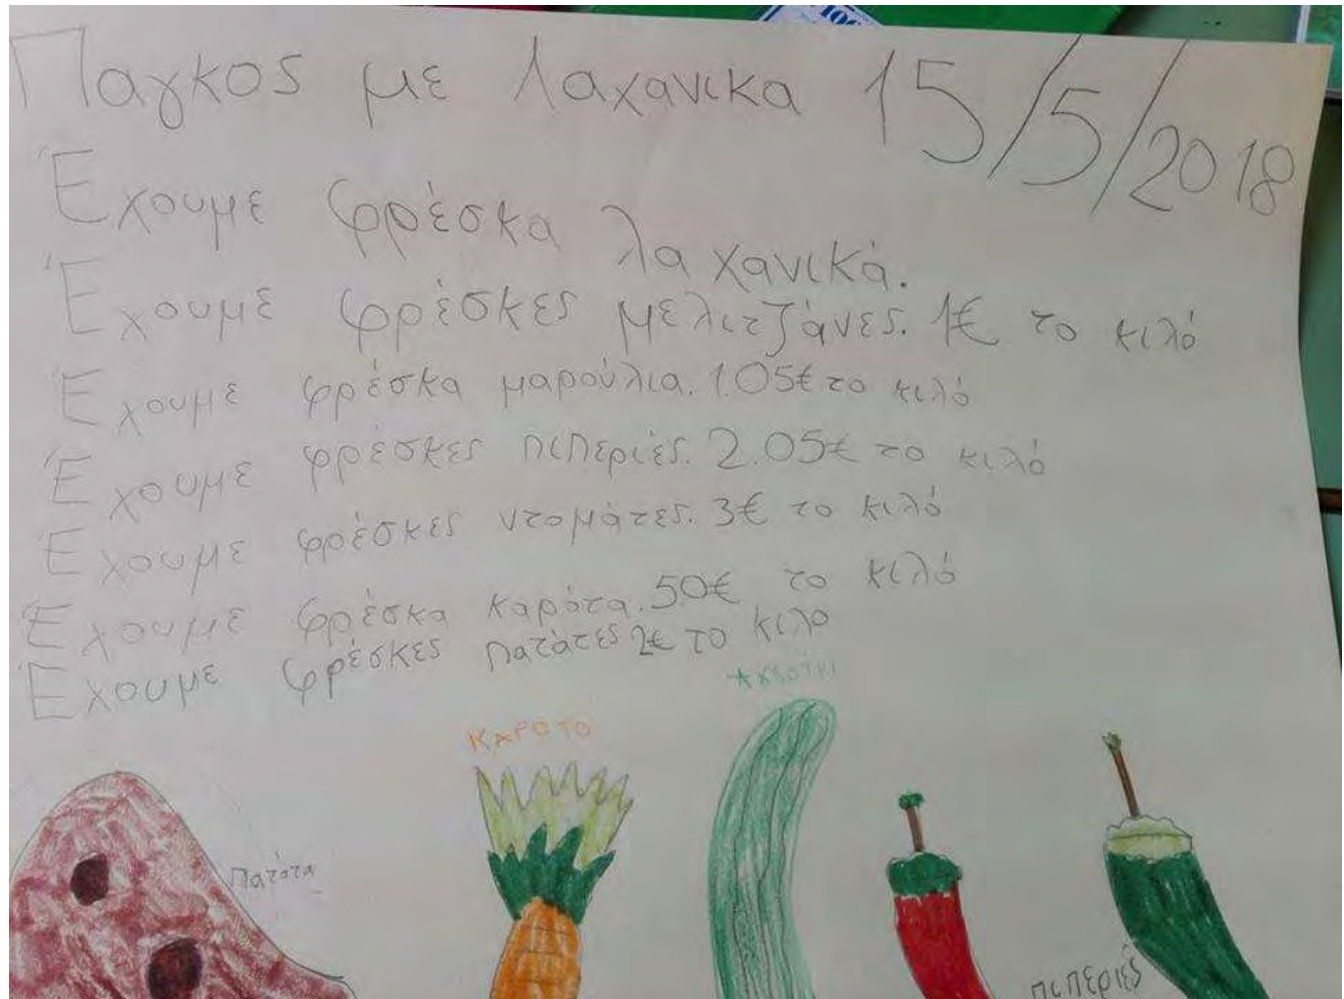 Παγκος με λαχανικα 15/5/2018
Έχουμε φρέσκα λαχανικά.
Έχουμε φρέσκες μελιτζάνες. 1€ το κιλό
Έχουμε φρέσκα μαρούλια. 1.05€ το κιλό
Έχουμε φρέσκες πιπεριές. 2.05€ το κιλό
Έχουμε φρέσκες ντομάτες. 3€ το κιλό
Έχουμε φρέσκα καρότα. 50€ το κιλό
Έχουμε φρέσκες πατάτες 2€ το κιλο
ΚΑΡΟΤΟ
πατάτα
πιπεριές